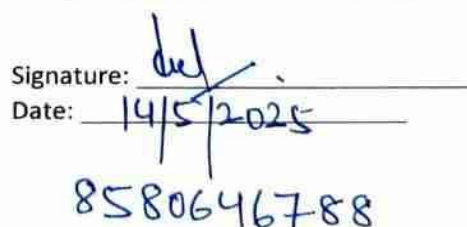 Signature:
Date: 14/5/2025
8580646788